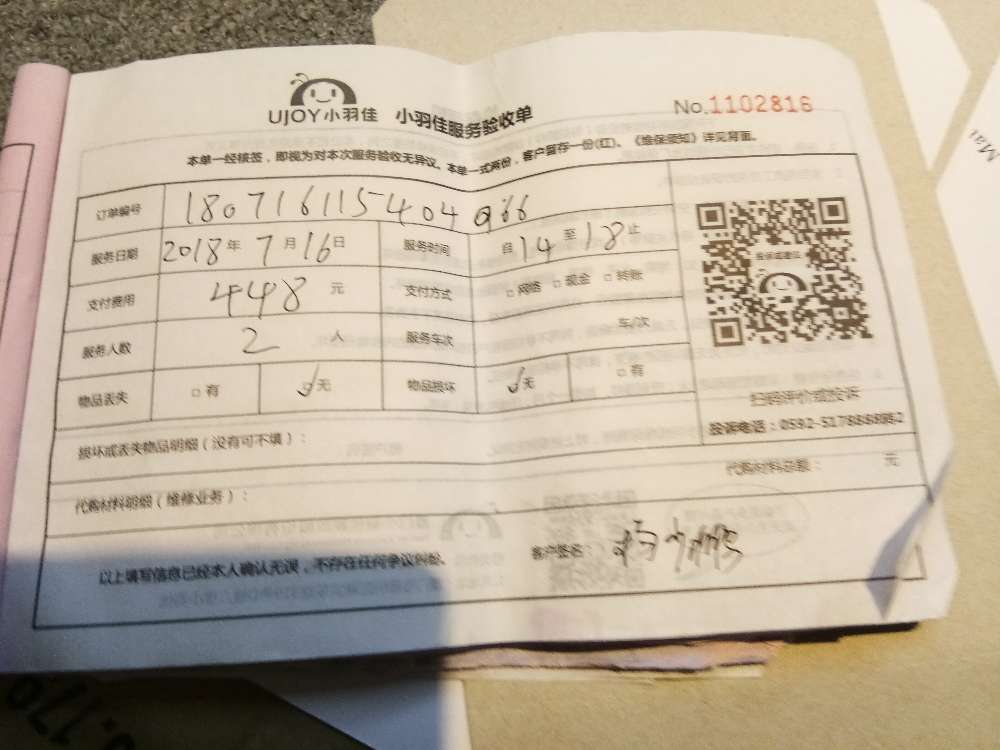 UJOY小羽佳 小羽佳服务验收单 No.1102816
本单一经核签，即视为对本次服务验收无异议。本单一式两份，客户留存一份(红)。《维保须知》详见背面。
订单编号 180716115404966
服务日期 2018年7月16日 服务时间 自14至18止
支付费用 448元 支付方式 □网络 □现金 □转账
服务人数 2人 服务车次 车/次
物品丢失 □有 ☑无 物品损坏 ☑无 □有
投诉或建议
扫码评价或投诉
投诉电话：0592-5178888转2
损坏或丢失物品明细（没有可不填）：
代购材料明细（维修业务）： 代购材料总额： 元
以上填写信息已经本人确认无误，不存在任何争议纠纷。 客户签名：
Mai